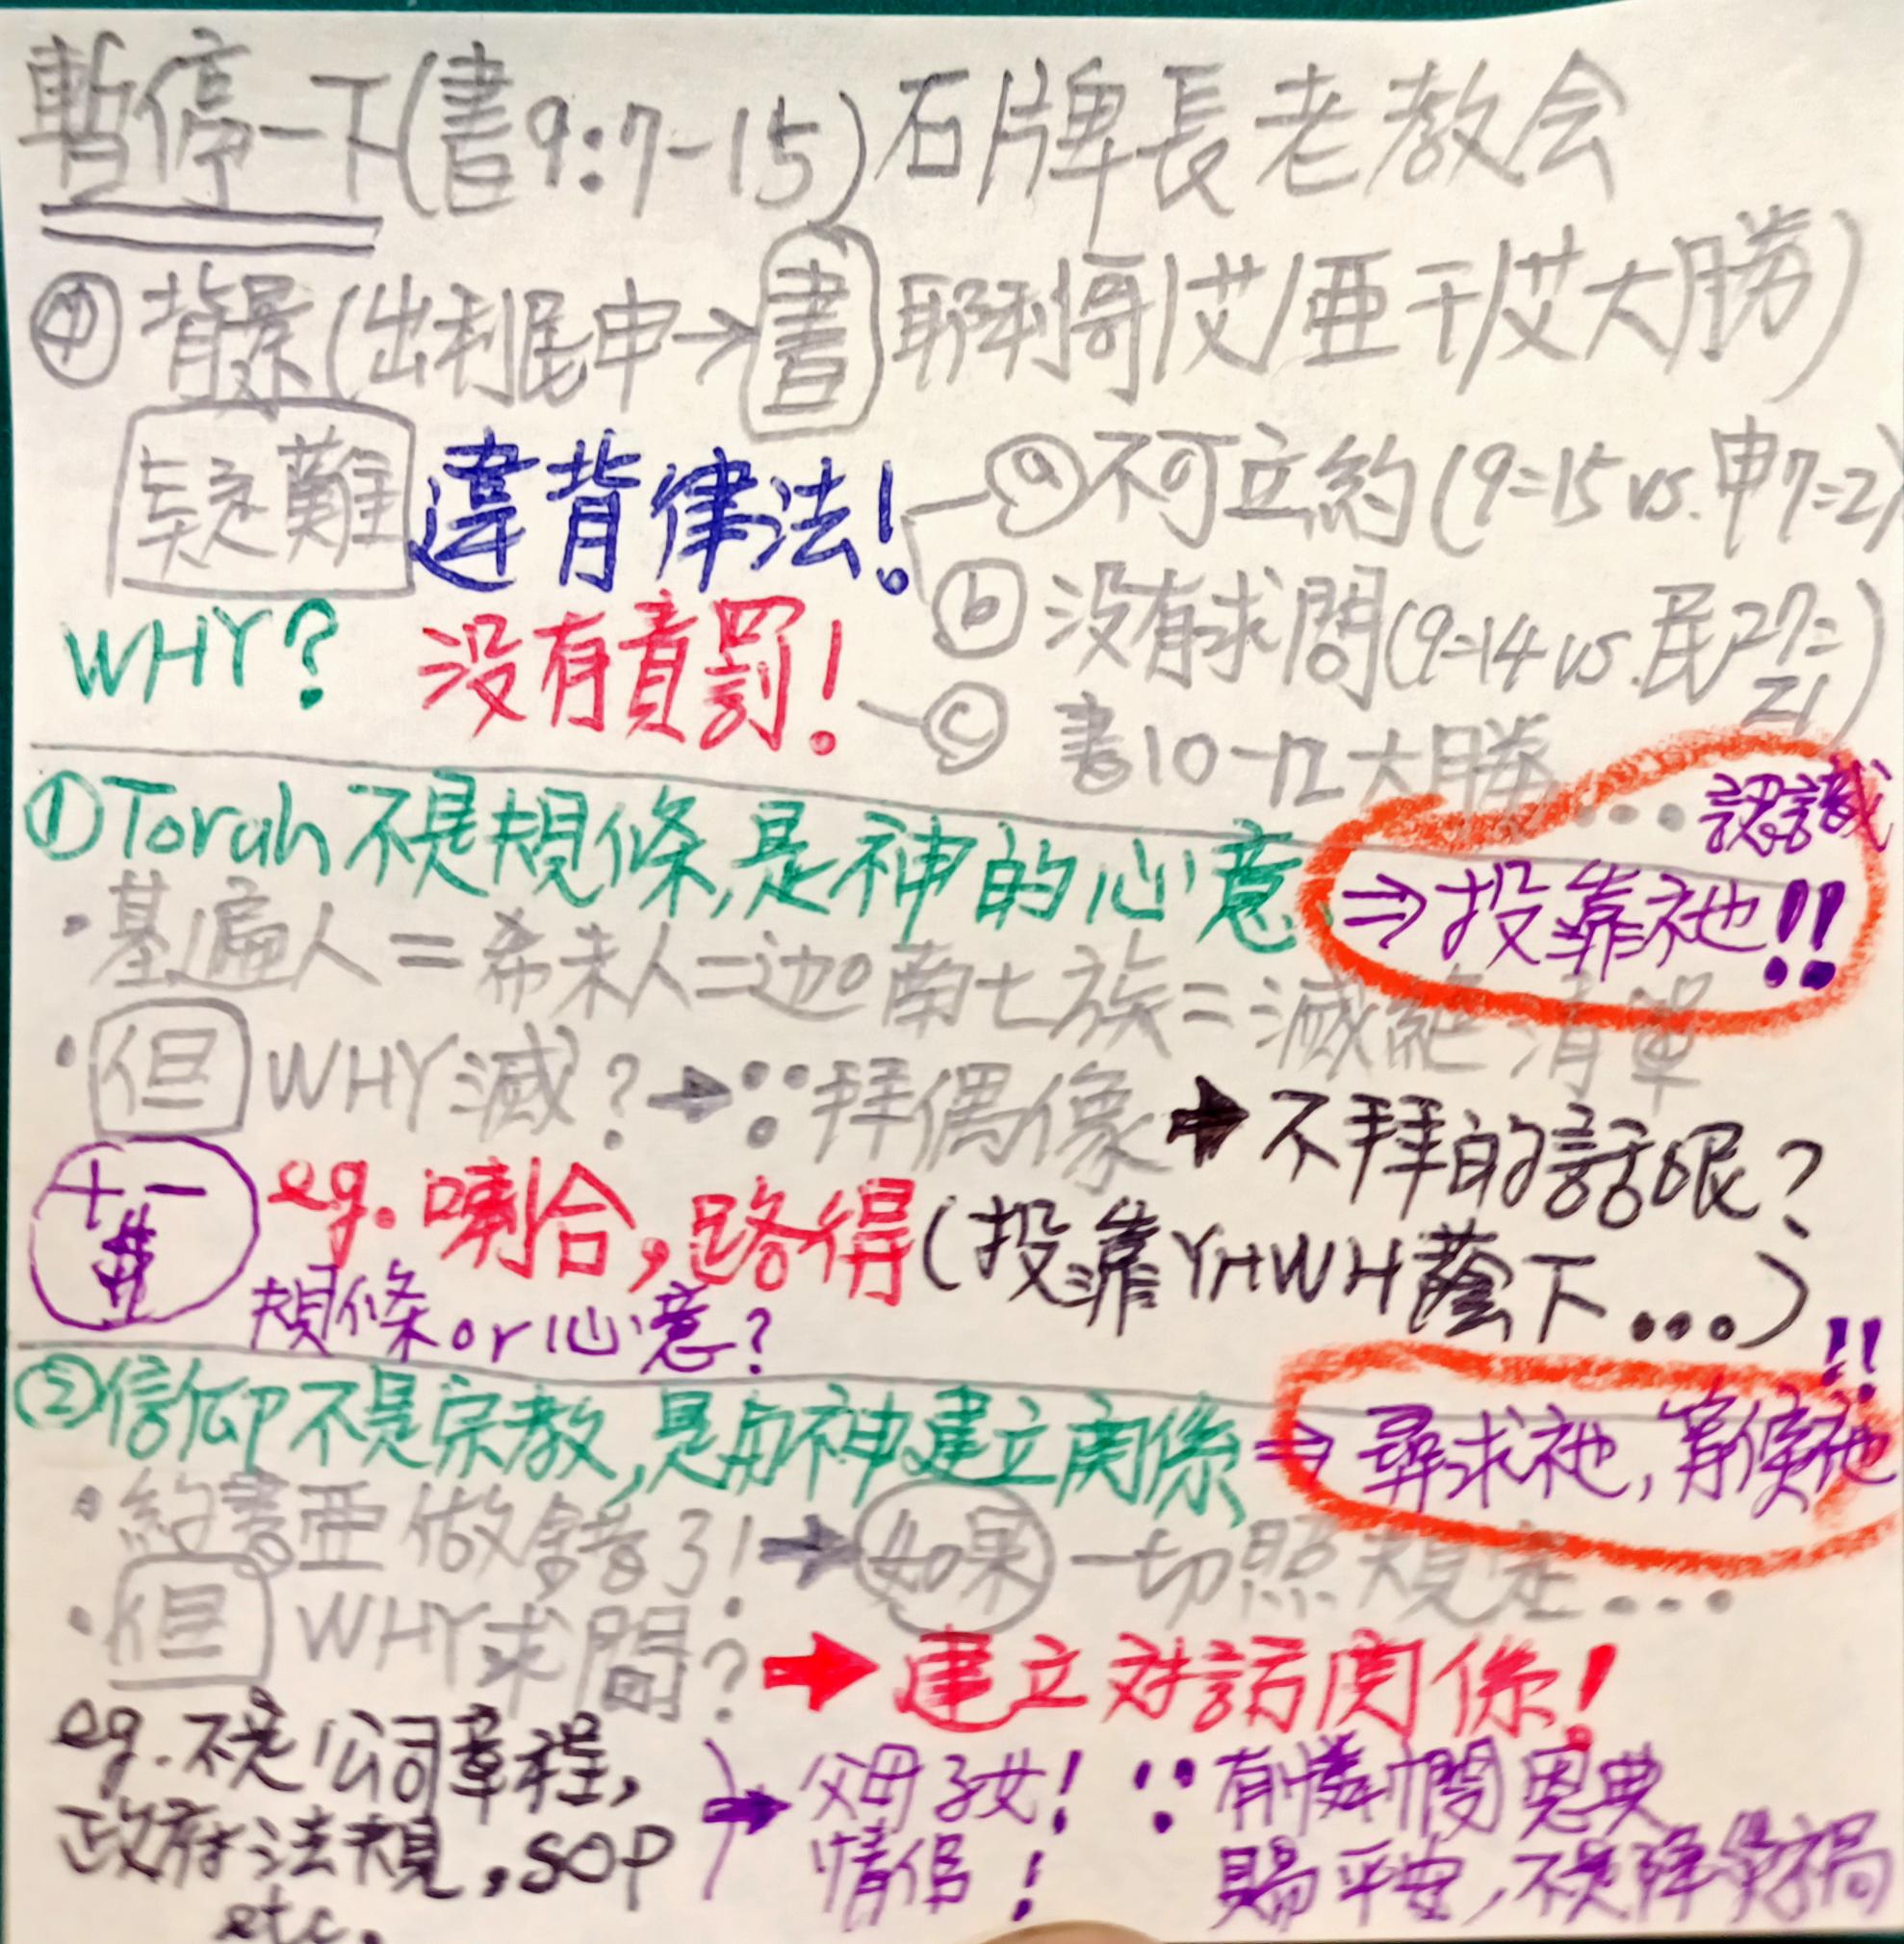 暫停一下(書9:7-15)石牌長老教会
背景(出利民申→書 耶利哥/艾/亜干/艾大勝)
疑難 違背律法! ⓐ不可立約(9:15 vs. 申7:2)
ⓑ没有求問(9:14 vs. 民27:21)
WHY? 没有責罰! ⓒ書10-12大勝...
①Torah不是規條,是神的心意 ⇒認識投靠祂!!
·基遍人=希未人=迦南七族=滅絕清單
·但WHY滅?→∵拜偶像→不拜的話呢?
十一 eg.喇合,路得(投靠YHWH蔭下...)
規條or心意?
②信仰不是宗教,是與神建立関係⇒尋求祂,等候祂!!
·約書亜做錯了!→如果一切照規定...
·但WHY求問?→建立对話関係!
eg.不是公司章程,
政府法規,SOP
etc.
→父母子女!
情侶!
∵有憐憫恩典
賜平安,不是降災禍